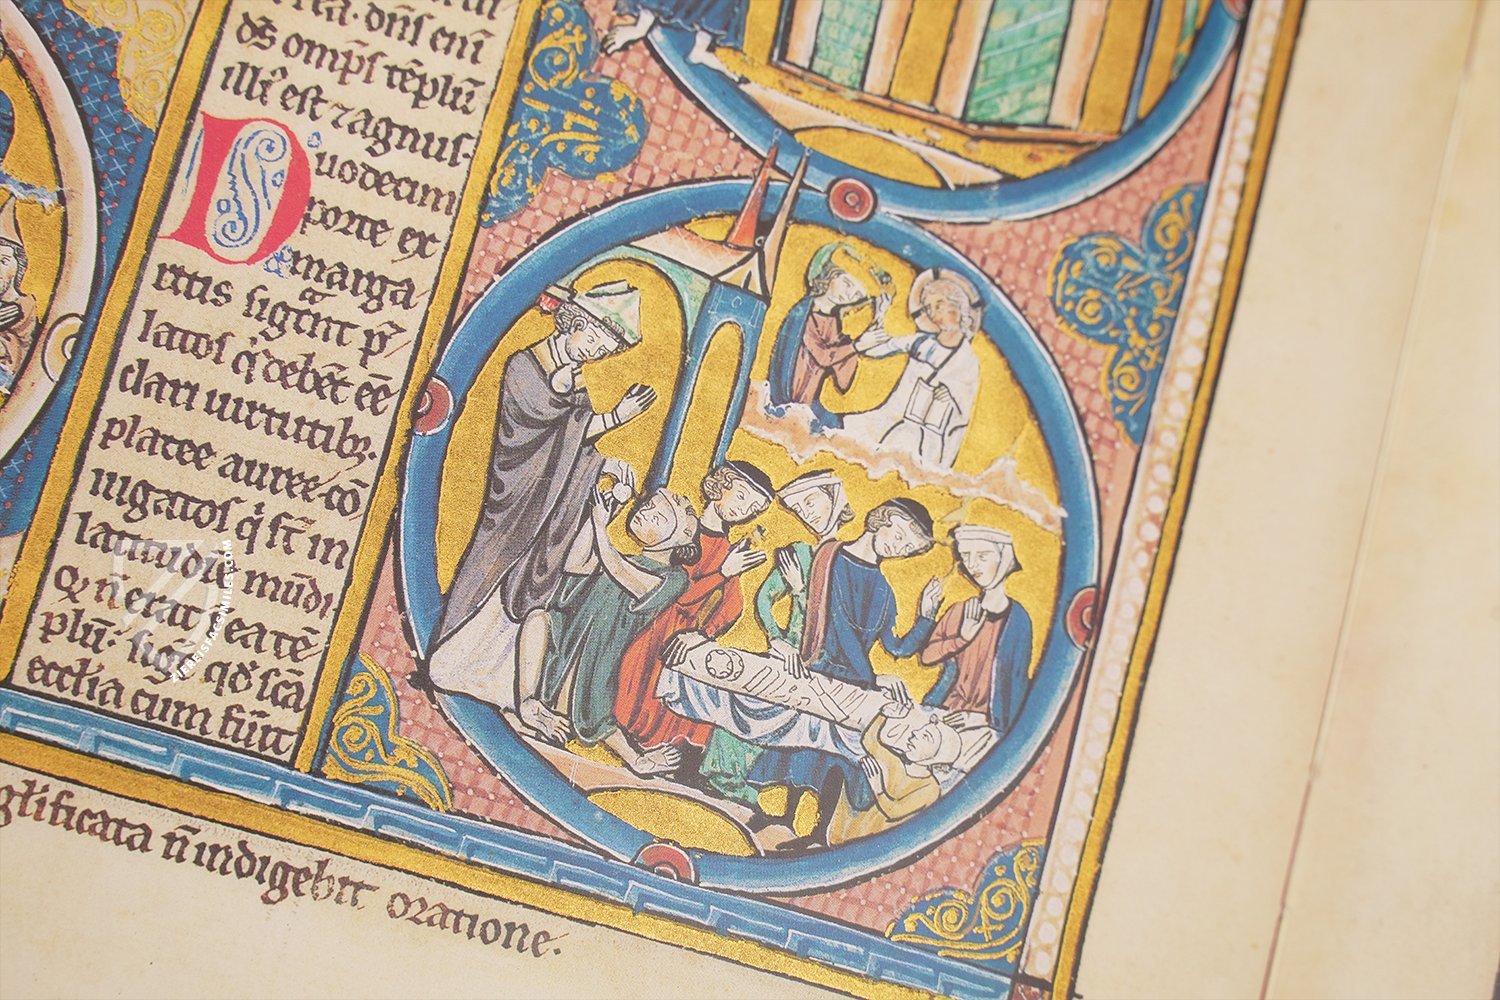 dñs eni
ds omps templū
illi est ⁊ agnus.
Duodecim
porte ex
marga
ritis signt p̄
latos q' debēt eē
clari uirtutibz.
platee auree cō
iugatos q' st̄ in
latitudīe mūdi
Et n̄ erat eatē
plū: sigt qd' scā
ecclia cum fūit
glificata n̄ indigebit oratione.
FACSIMILES.COM